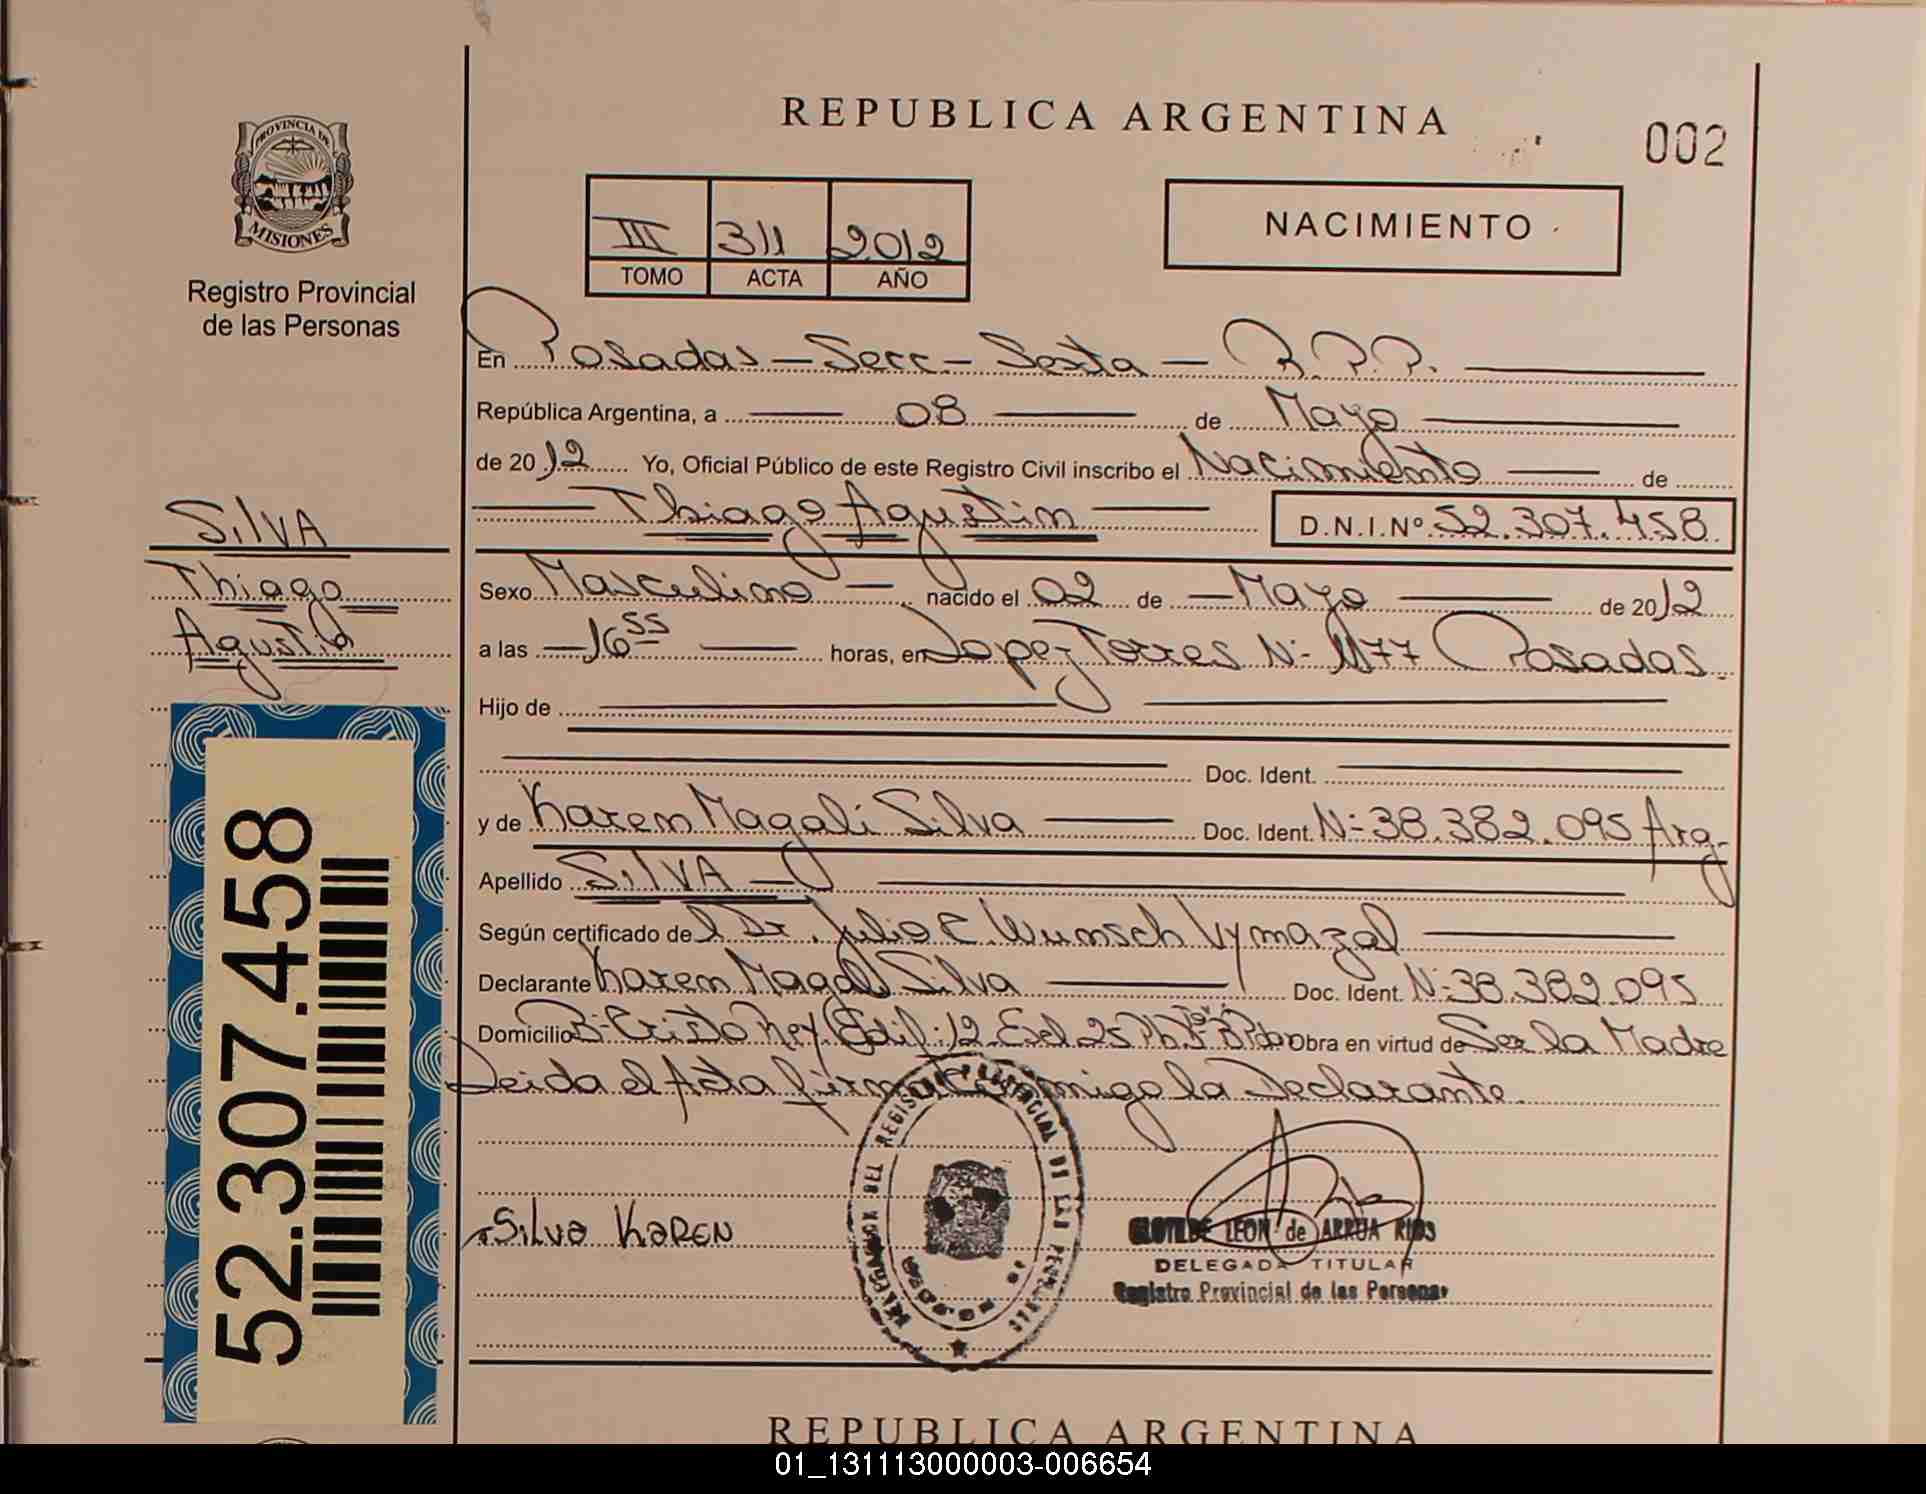 REPUBLICA ARGENTINA
002
PROVINCIA DE
MISIONES
Registro Provincial
de las Personas
III 311 2012
TOMO ACTA AÑO
NACIMIENTO
En Posadas - Secc - Sexta - R.P.P.
República Argentina, a 08 de Mayo
de 2012 Yo, Oficial Público de este Registro Civil inscribo el Nacimiento de
Thiago Agustin D.N.I.Nº 52.307.458
SilVA
Thiago
Agustin
Sexo Masculino nacido el 02 de Mayo de 2012
a las 16 55 horas, en Lopez Torres N- 1177 Posadas
Hijo de
Doc. Ident.
y de Karem Magali Silva Doc. Ident. N- 38.382.095 Arg-
Apellido SilVA
Según certificado de l Dr. Julio C Wunsch Vymazal
Declarante Karem Magali Silva Doc. Ident. N- 38.382.095
Domicilio B- Cristo Rey Edif: 12 Esc 25 Obra en virtud de Ser la Madre
Leida el Acta firma Conmigo la Declarante.
52.307.458
Silva KAREN
DELEGACION DEL REGISTRO PROVINCIAL DE LAS PERSONAS
CLOTILDE LEON de ARRUA RIOS
DELEGADA TITULAR
Registro Provincial de las Personas
REPUBLICA ARGENTINA
01_131113000003-006654